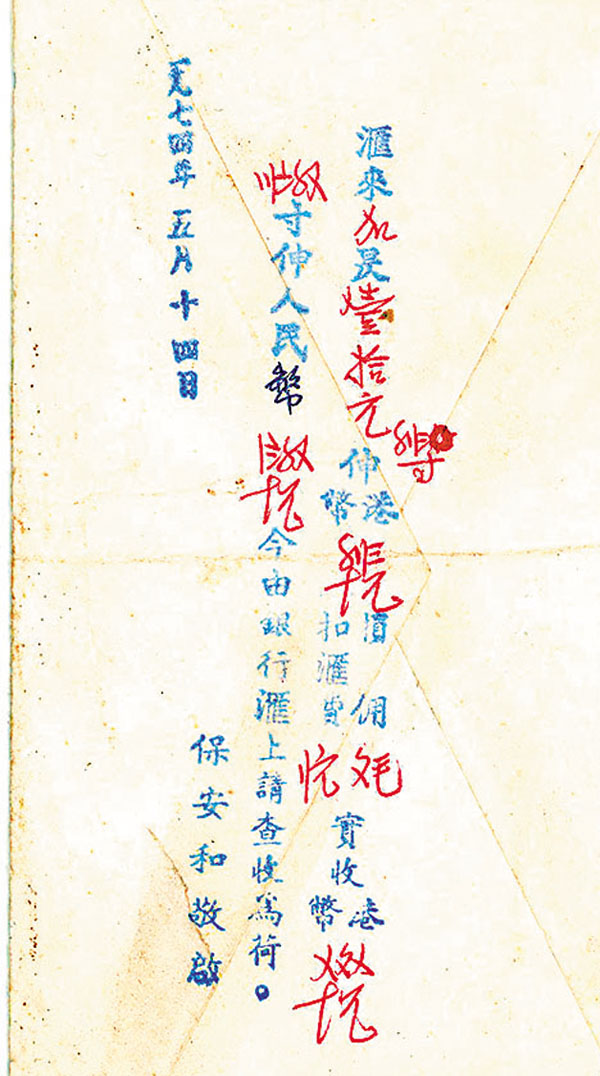 滙來加昃壹拾元
伸港幣
價
扣滙費
佣
實收港幣
寸伸人民幣
今由銀行滙上請查收為荷。
保安和敬啟
一九七四年五月十四日